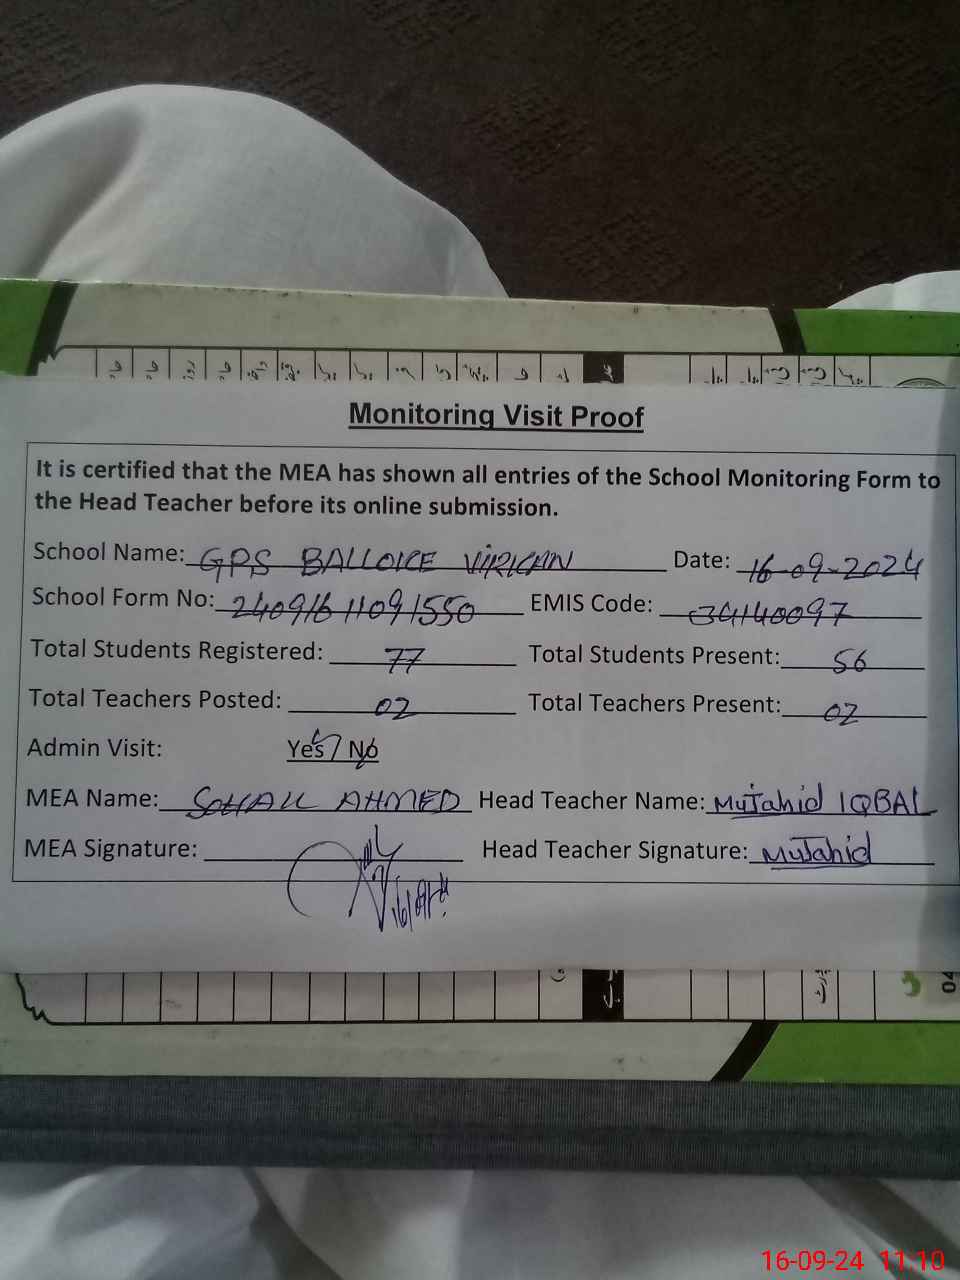 Monitoring Visit Proof
It is certified that the MEA has shown all entries of the School Monitoring Form to
the Head Teacher before its online submission.
School Name: GPS BALLOKE VIRKAN Date: 16-09-2024
School Form No: 2409161109 1550 EMIS Code: 34140097
Total Students Registered: 77 Total Students Present: 56
Total Teachers Posted: 02 Total Teachers Present: 02
Admin Visit: Yes / No
MEA Name: SOHAIL AHMED Head Teacher Name: Mujahid IQBAL
MEA Signature: Head Teacher Signature: Mujahid
04
16-09-24 11:10